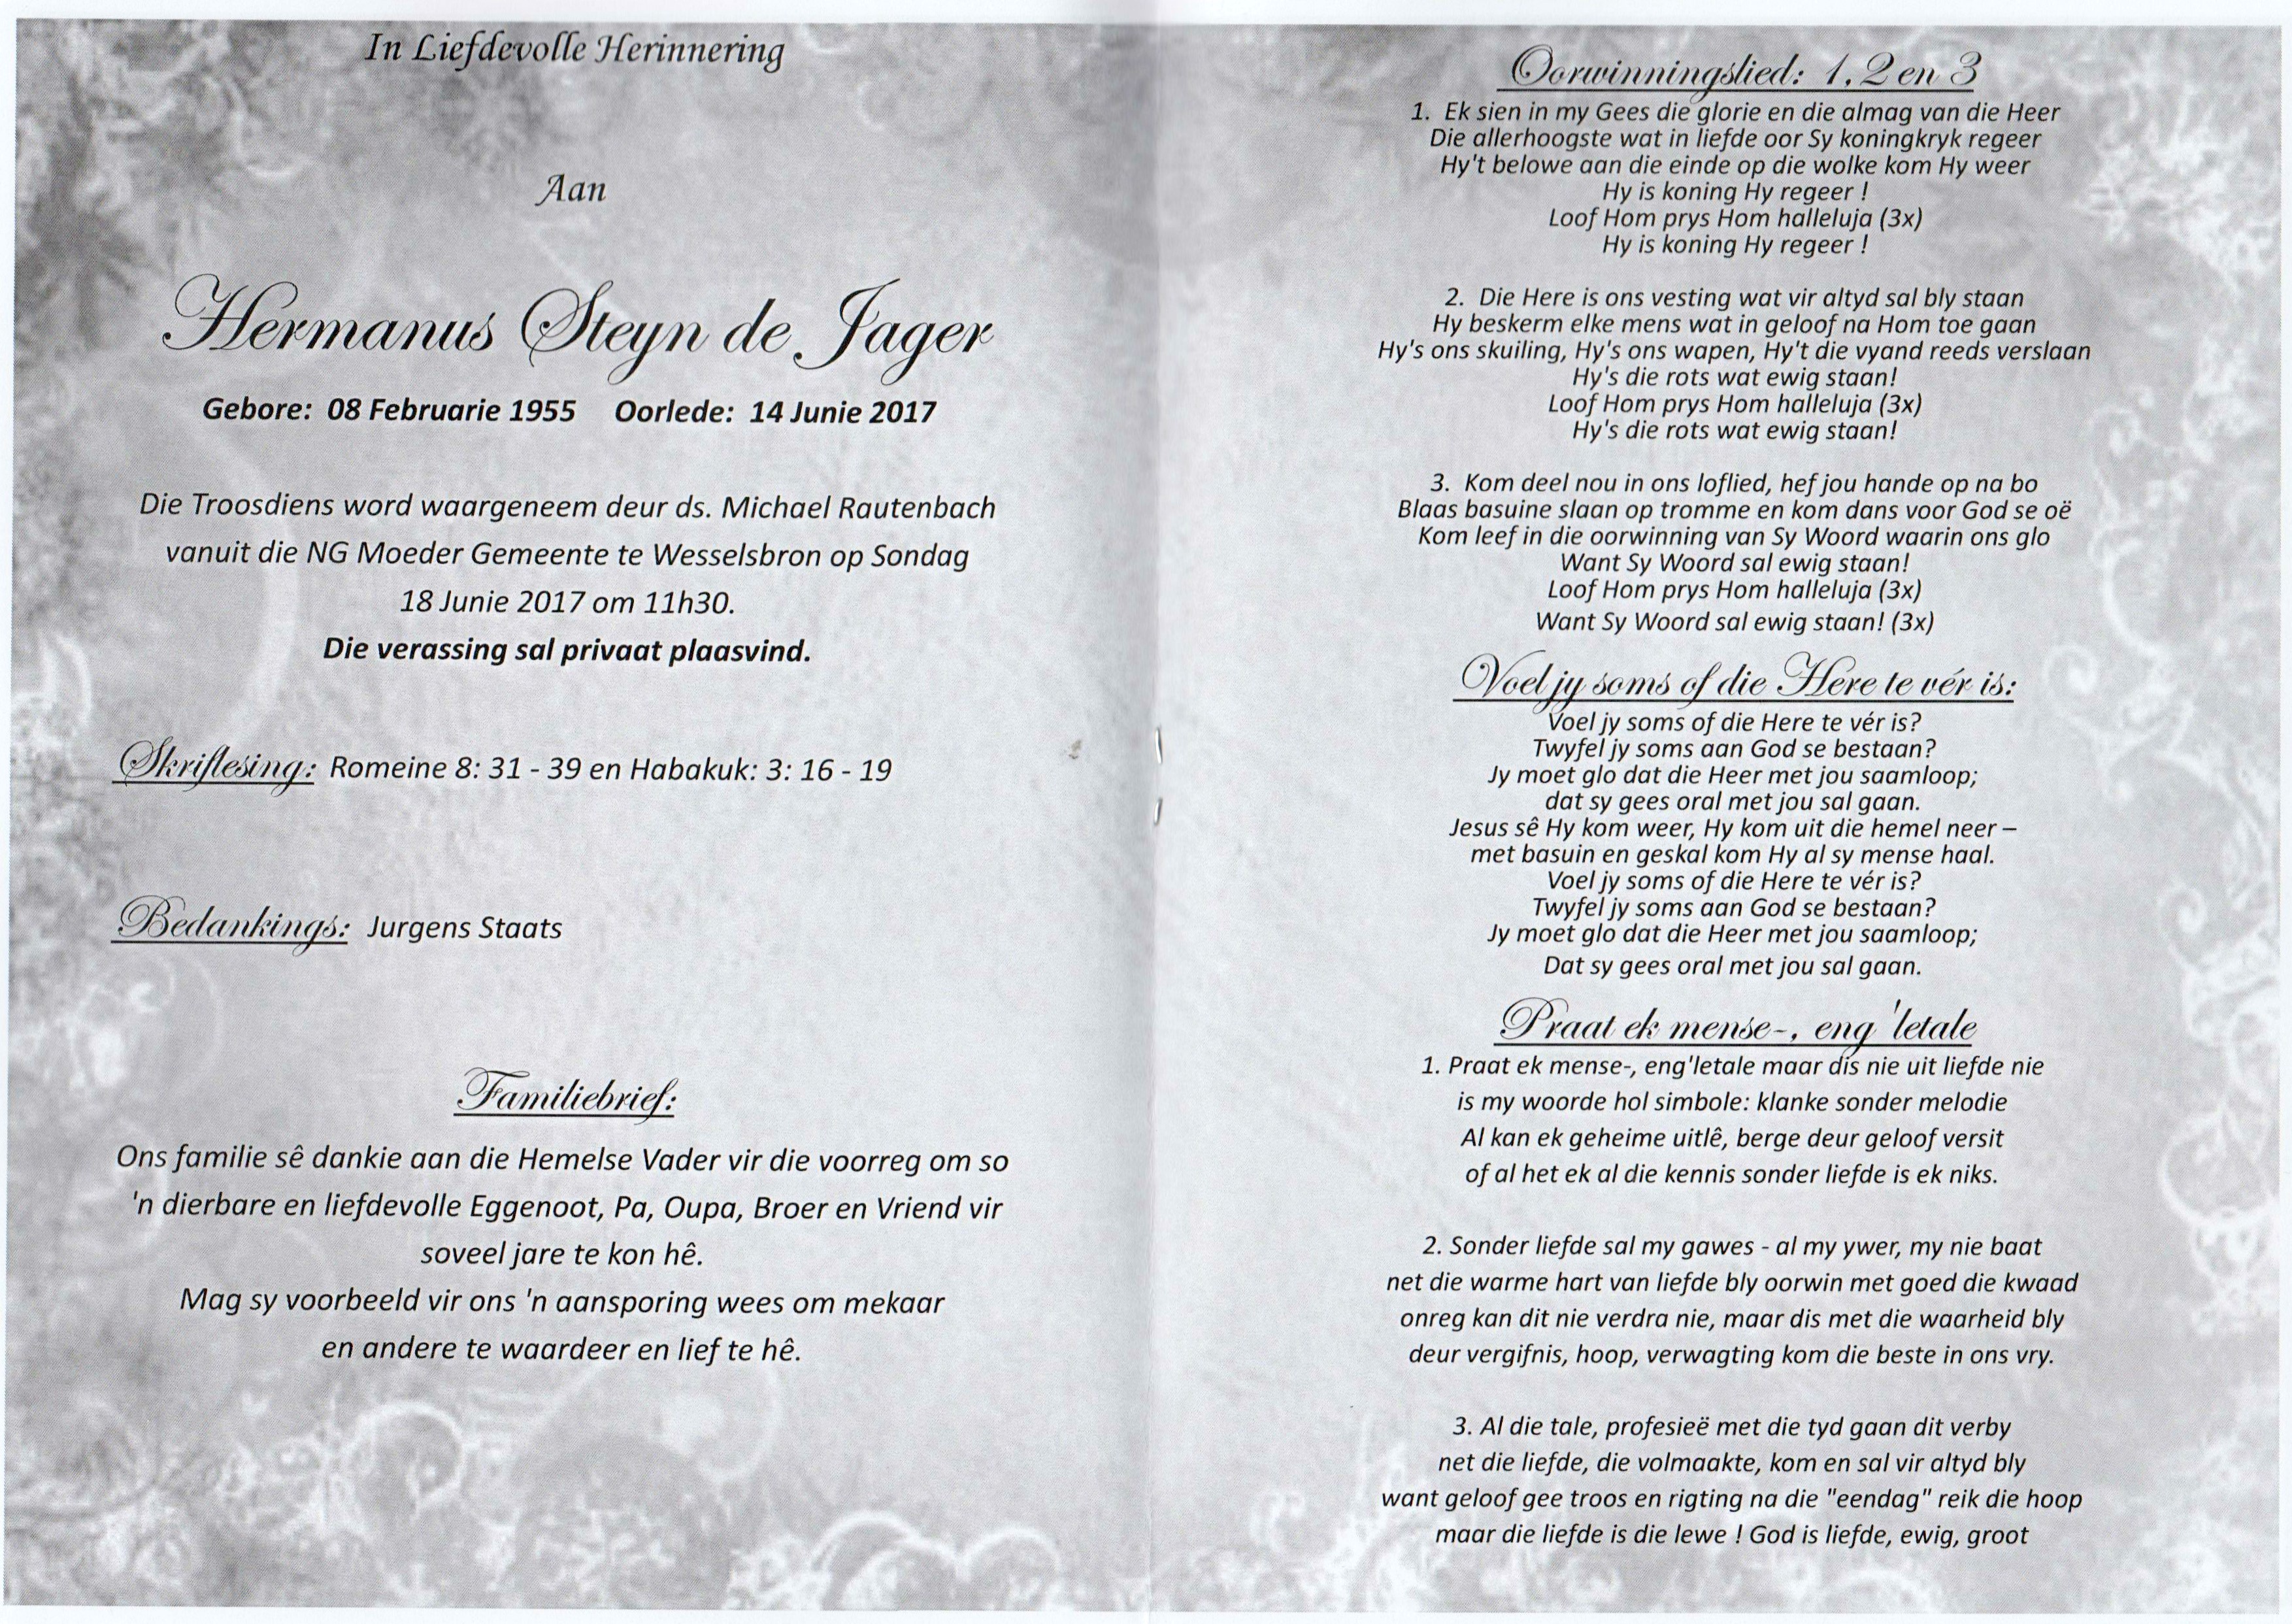 In Liefdevolle Herinnering
Aan
Hermanus Steyn de Jager
Gebore: 08 Februarie 1955 Oorlede: 14 Junie 2017
Die Troosdiens word waargeneem deur ds. Michael Rautenbach
vanuit die NG Moeder Gemeente te Wesselsbron op Sondag
18 Junie 2017 om 11h30.
Die verassing sal privaat plaasvind.
Skriflesing: Romeine 8: 31 - 39 en Habakuk: 3: 16 - 19
Bedankings: Jurgens Staats
Familiebrief:
Ons familie sê dankie aan die Hemelse Vader vir die voorreg om so
'n dierbare en liefdevolle Eggenoot, Pa, Oupa, Broer en Vriend vir
soveel jare te kon hê.
Mag sy voorbeeld vir ons 'n aansporing wees om mekaar
en andere te waardeer en lief te hê.
Oorwinningslied: 1, 2 en 3
1. Ek sien in my Gees die glorie en die almag van die Heer
Die allerhoogste wat in liefde oor Sy koningkryk regeer
Hy't belowe aan die einde op die wolke kom Hy weer
Hy is koning Hy regeer !
Loof Hom prys Hom halleluja (3x)
Hy is koning Hy regeer !
2. Die Here is ons vesting wat vir altyd sal bly staan
Hy beskerm elke mens wat in geloof na Hom toe gaan
Hy's ons skuiling, Hy's ons wapen, Hy't die vyand reeds verslaan
Hy's die rots wat ewig staan!
Loof Hom prys Hom halleluja (3x)
Hy's die rots wat ewig staan!
3. Kom deel nou in ons loflied, hef jou hande op na bo
Blaas basuine slaan op tromme en kom dans voor God se oë
Kom leef in die oorwinning van Sy Woord waarin ons glo
Want Sy Woord sal ewig staan!
Loof Hom prys Hom halleluja (3x)
Want Sy Woord sal ewig staan! (3x)
Voel jy soms of die Here te vér is:
Voel jy soms of die Here te vér is?
Twyfel jy soms aan God se bestaan?
Jy moet glo dat die Heer met jou saamloop;
dat sy gees oral met jou sal gaan.
Jesus sê Hy kom weer, Hy kom uit die hemel neer –
met basuin en geskal kom Hy al sy mense haal.
Voel jy soms of die Here te vér is?
Twyfel jy soms aan God se bestaan?
Jy moet glo dat die Heer met jou saamloop;
Dat sy gees oral met jou sal gaan.
Praat ek mense-, eng 'letale
1. Praat ek mense-, eng'letale maar dis nie uit liefde nie
is my woorde hol simbole: klanke sonder melodie
Al kan ek geheime uitlê, berge deur geloof versit
of al het ek al die kennis sonder liefde is ek niks.
2. Sonder liefde sal my gawes - al my ywer, my nie baat
net die warme hart van liefde bly oorwin met goed die kwaad
onreg kan dit nie verdra nie, maar dis met die waarheid bly
deur vergifnis, hoop, verwagting kom die beste in ons vry.
3. Al die tale, profesieë met die tyd gaan dit verby
net die liefde, die volmaakte, kom en sal vir altyd bly
want geloof gee troos en rigting na die "eendag" reik die hoop
maar die liefde is die lewe ! God is liefde, ewig, groot